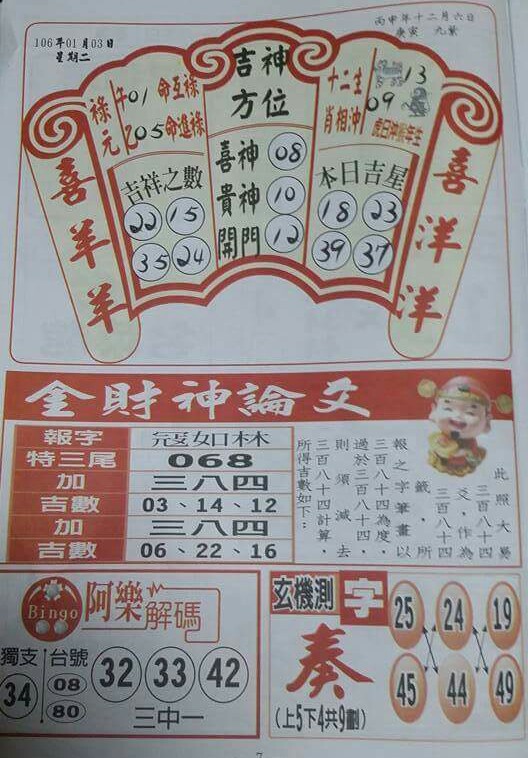 106年01月03日
星期二
丙申年十二月六日
庚寅 九紫
祿元
午01 命互祿
05 命進祿
吉神方位
喜神 08
貴神 10
開門 12
十二生肖相沖
13
09
吉祥之數
22 15
35 24
本日吉星
18 23
39 37
喜羊羊
喜洋洋
金財神論爻
報字 寇如林
特三尾 068
加 三八四
吉數 03、14、12
加 三八四
吉數 06、22、16
此照大易
三百八十四
爻，作為
三百八十四
籤，所
報之字筆畫以
三百八十四為度，
過於三百八十四，
則須減去
三百八十四計算，
所得吉數如下：
Bingo
阿樂解碼
獨支 34
台號 08 80
32 33 42
三中一
玄機測字
奏
(上5下4共9劃)
25 24 19
45 44 49
7